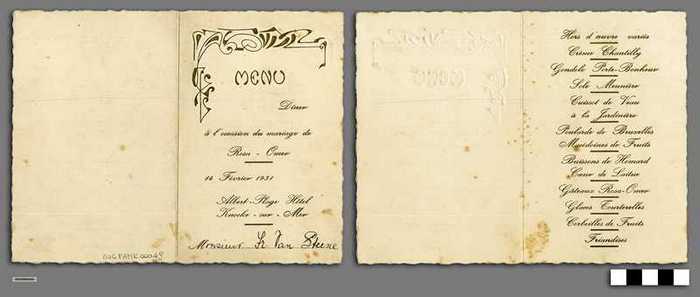 MENU
Dîner
à l'occasion du mariage de
Rosa - Omer
14 Février 1931
Albert-Plage Hôtel
Knocke - sur - Mer
Monsieur
Van
DOC FAME 00049
MENU
Hors d'œuvre variés
Crème Chantilly
Gondole Porte-Bonheur
Sole Meunière
Cuissot de Veau
à la Jardinière
Poularde de Bruxelles
Macédoines de Fruits
Buissons de Homard
Cœur de Laitue
Gâteaux Rosa-Omer
Glaces Tourterelles
Corbeilles de Fruits
Friandises